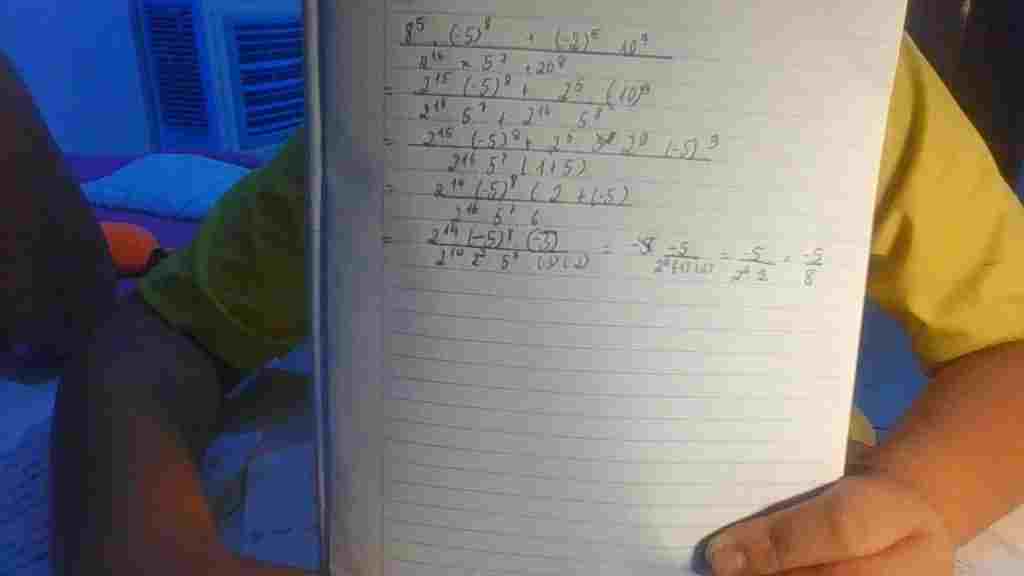 8⁵ · (-5)⁸ + (-2)⁵ · 10⁹ / 2¹⁶ × 5⁷ + 20⁸
= 2¹⁵ (-5)⁸ + 2⁵ (10)⁹ / 2¹⁶ 5⁷ + 2¹⁶ 5⁸
= 2¹⁵ (-5)⁸ + 2⁵ 2⁹ (-5)⁹ / 2¹⁶ 5⁷ (1+5)
= 2¹⁴ (-5)⁸ (2 + (-5) / 2¹⁶ 5⁷ 6
= 2¹⁴ (-5)⁸ (-3) / 5⁷ = -5 = -5 = -5/8